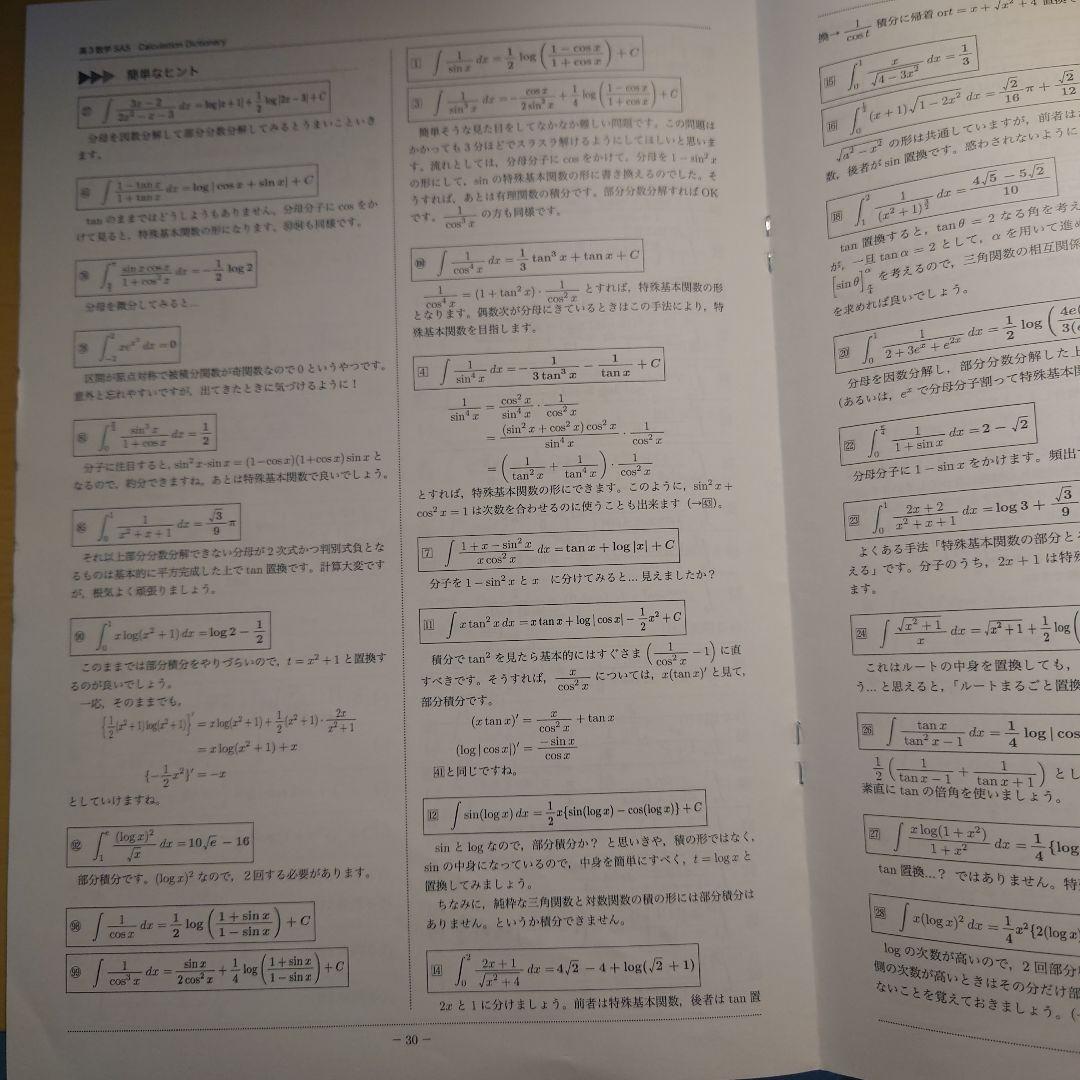 高3数学SAS Calculation Dictionary
▶▶▶ 簡単なヒント
∫ (3x−2)/(2x²−x−3) dx = log|x+1| + 1/2 log|2x−3| + C
分母を因数分解して部分分数分解してみるとうまいこといき
ます。
∫ (1−tan x)/(1+tan x) dx = log|cos x + sin x| + C
tan のままではどうしようもありません。分母分子に cos をか
けて見ると、特殊基本関数の形になります。も同様です。
sin x cos x/(1+cos² x) dx = −1/2 log 2
分母を微分してみると…
∫_{−2}^{2} xe^{x²} dx = 0
区間が原点対称で被積分関数が奇関数なので 0 というやつです。
意外と忘れやすいですが、出てきたときに気づけるように！
∫_0^{π/2} sin³ x/(1+cos x) dx = 1/2
分子に注目すると, sin² x·sin x = (1−cos x)(1+cos x) sin x と
なるので、約分できますね。あとは特殊基本関数で良いでしょう。
∫_0^1 1/(x²+x+1) dx = √3/9 π
それ以上部分分数分解できない分母が 2 次式かつ判別式負とな
るものは基本的に平方完成した上で tan 置換です。計算大変です
が、根気よく頑張りましょう。
⑨⓪ ∫_0^1 x log(x²+1) dx = log 2 − 1/2
このままでは部分積分をやりづらいので, t = x² + 1 と置換す
るのが良いでしょう。
一応, そのままでも,
{1/2(x²+1)log(x²+1)}′ = x log(x²+1) + 1/2(x²+1)·2x/(x²+1)
= x log(x² + 1) + x
{−1/2 x²}′ = −x
としていけますね。
92 ∫_1^e (log x)²/√x dx = 10√e − 16
部分積分です。(log x)² なので, 2 回する必要があります。
98 ∫ 1/cos x dx = 1/2 log((1+sin x)/(1−sin x)) + C
99 ∫ 1/cos³ x dx = sin x/(2cos² x) + 1/4 log((1+sin x)/(1−sin x)) + C
1 ∫ 1/sin x dx = 1/2 log((1−cos x)/(1+cos x)) + C
3 ∫ 1/sin³ x dx = −cos x/(2sin² x) + 1/4 log((1−cos x)/(1+cos x)) + C
簡単そうな見た目をしてなかなか難しい問題です。この問題は
かかっても 3 分ほどでスラスラ解けるようにしてほしいと思いま
す。流れとしては, 分母分子に cos をかけて, 分母を 1 − sin² x
の形にして, sin の特殊基本関数の形に書き換えるのでした。そ
うすれば, あとは有理関数の積分です。部分分数分解すれば OK
です。1/cos³ x の方も同様です。
∫ 1/cos⁴ x dx = 1/3 tan³ x + tan x + C
1/cos⁴ x = (1 + tan² x)·1/cos² x とすれば, 特殊基本関数の形
となります。偶数次が分母にきているときはこの手法により, 特
殊基本関数を目指します。
4 ∫ 1/sin⁴ x dx = −1/(3 tan³ x) − 1/tan x + C
1/sin⁴ x = cos² x/sin⁴ x · 1/cos² x
= (sin² x + cos² x) cos² x/sin⁴ x · 1/cos² x
= (1/tan² x + 1/tan⁴ x) · 1/cos² x
とすれば, 特殊基本関数の形にできます。このように, sin² x +
cos² x = 1 は次数を合わせるのに使うことも出来ます (→43)。
7 ∫ (1+x−sin² x)/(x cos² x) dx = tan x + log |x| + C
分子を 1 − sin² x と x に分けてみると… 見えましたか？
11 ∫ x tan² x dx = x tan x + log | cos x| − 1/2 x² + C
積分で tan² を見たら基本的にはすぐさま (1/cos² x − 1) に直
すべきです。そうすれば, x/cos² x については, x(tan x)′ と見て,
部分積分です。
(x tan x)′ = x/cos² x + tan x
(log | cos x|)′ = −sin x/cos x
41と同じですね。
12 ∫ sin(log x) dx = 1/2 x{sin(log x) − cos(log x)} + C
sin と log なので, 部分積分か？ と思いきや, 積の形ではなく,
sin の中身になっているので, 中身を簡単にすべく, t = log x と
置換してみましょう。
ちなみに, 純粋な三角関数と対数関数の積の形には部分積分は
ありません。というか積分できません。
14 ∫_0^2 (2x+1)/√(x²+4) dx = 4√2 − 4 + log(√2 + 1)
2x と 1 に分けましょう。前者は特殊基本関数, 後者は tan 置
− 30 −
換→ 1/cos t 積分に帰着 or t = x + √(x² + 4 置換で
15 ∫_0^1 x/√(4−3x²) dx = 1/3
16 (x+1)√(1−2x²) dx = √2/16 π + √2/12
√(a²−x²) の形は共通していますが, 前者は
数, 後者が sin 置換です。惑わされないように
18 ∫_1^2 1/(x²+1)^{3/2} dx = (4√5 − 5√2)/10
tan 置換すると, tan θ = 2 なる角を考え
が, 一旦 tan α = 2 として, α を用いて進め
[sin θ]^α_{π/4} を考えるので, 三角関数の相互関係
を求めれば良いでしょう。
20 ∫_0^1 1/(2 + 3e^x + e^{2x}) dx = 1/2 log(
分母を因数分解し, 部分分数分解した上
(あるいは, e^x で分母分子割って特殊基本関
22 ∫_0^{π/4} 1/(1+sin x) dx = 2 − √2
分母分子に 1 − sin x をかけます。頻出
23 ∫_0^1 (2x+2)/(x²+x+1) dx = log 3 + √3/9
よくある手法「特殊基本関数の部分と
える」です。分子のうち, 2x + 1 は特殊
ます。
24 ∫ √(x²+1)/x dx = √(x²+1) + 1/2 log(
これはルートの中身を置換しても,
う… と思えると,「ルートまるごと置換
26 ∫ tan x/(tan² x−1) dx = 1/4 log | cos
1/2(1/(tan x−1) + 1/(tan x+1)) とし
素直に tan の倍角を使いましょう。
27 ∫ x log(1+x²)/(1+x²) dx = 1/4{log
tan 置換…？ ではありません。特
28 ∫ x(log x)² dx = 1/4 x²{2(log x)
log の次数が高いので, 2 回部分
側の次数が高いときはその分だけ部
ないことを覚えておきましょう。(